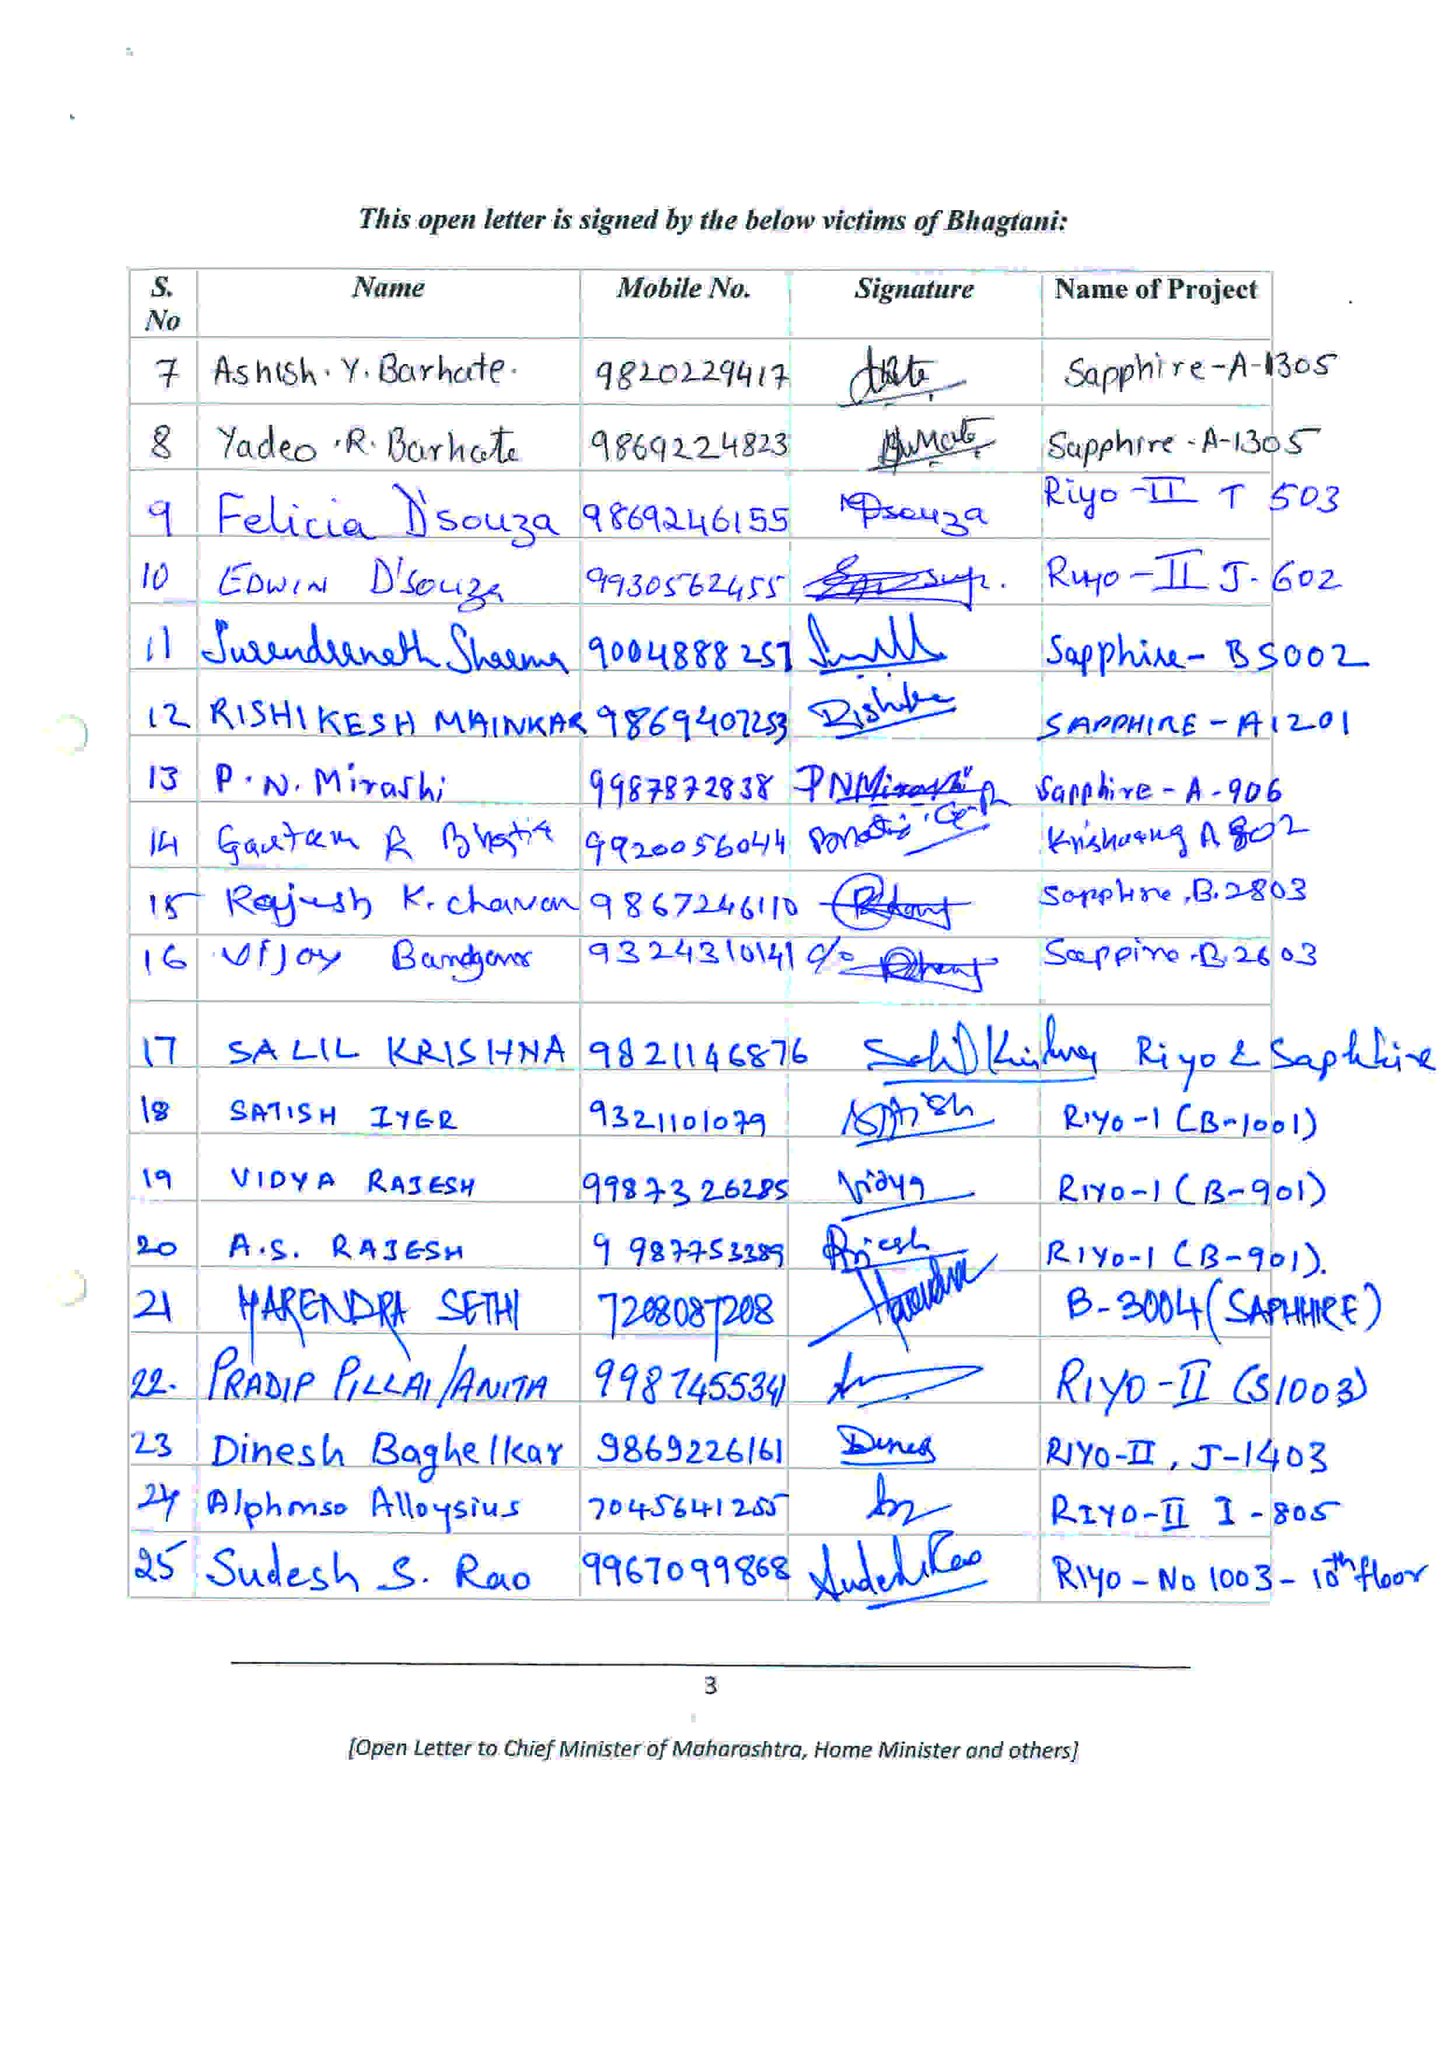 This open letter is signed by the below victims of Bhagtani:
S. No Name Mobile No. Signature Name of Project
7 Ashish. Y. Barhate. 9820229417 Sapphire-A-1305
8 Yadeo .R. Barhate 9869224823 Sapphire-A-1305
9 Felicia D'souza 9869246155 Dsouza Riyo-II T 503
10 EDWIN D'Souza 9930562455 Riyo-II J-602
11 Surendranath Sharma 9004888257 Sapphire- B5002
12 RISHIKESH MAINKAR 9869407253 SAPPHIRE-A1201
13 P.N. Mirashi 9987872838 PNMirashi Sapphire-A-906
14 Gautam R Bhatia 9920056044 A 802
15 Rajesh K. chavan 9867246110 Sapphire.B.2803
16 Vijay 9324310141 c/o Sappire.B.2603
17 SALIL KRISHNA 9821146876 Salil Krishna Riyo & Saphhire
18 SATISH IYER 9321101079 Satish RIYO-1 (B-1001)
19 VIDYA RAJESH 9987326285 Vidya RIYO-1 (B-901)
20 A.S. RAJESH 9987753389 Rajesh RIYO-1 (B-901).
21 HARENDRA SETHI 7208087208 Harendra B-3004 (SAPHHIRE)
22. PRADIP PILLAI/ANITA 9987455341 RIYO-II (S1003)
23 Dinesh Baghelkar 9869226161 Dines RIYO-II, J-1403
24 Alphonso Alloysius 7045641255 RIYO-II I-805
25 Sudesh S. Rao 9967099868 Sudesh Rao RIYO-No 1003-10th floor
3
[Open Letter to Chief Minister of Maharashtra, Home Minister and others]